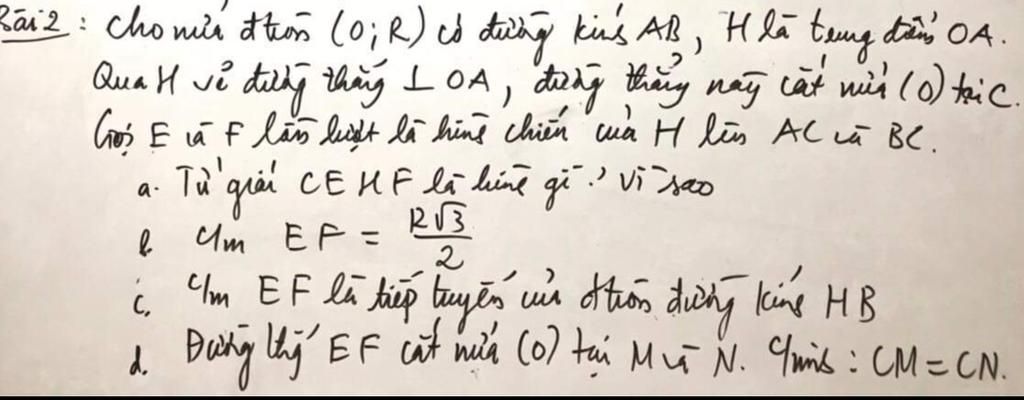 Bài 2 : Cho nửa đtròn (O; R) có đường kính AB, H là trung điểm OA.
Qua H vẽ đường thẳng ⊥ OA, đường thẳng này cắt nửa (O) tại C.
Gọi E và F lần lượt là hình chiếu của H lên AC và BC.
a. Tứ giác CEHF là hình gì ? Vì sao
b. C/m EF = R√3/2
c. C/m EF là tiếp tuyến của đtròn đường kính HB
d. Đường thg EF cắt nửa (O) tại M và N. C/minh : CM = CN.